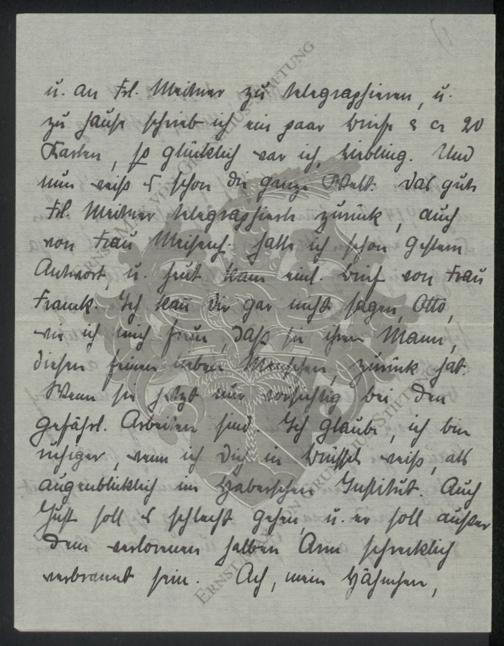 u. an Frl. Meitner zu telegraphieren, u.
zu Hause schrieb ich ein paar Briefe & ca 20
Karten, so glücklich war ich, Liebling. Und
nun weiß es schon die ganze Welt. Das gute
Frl. Meitner telegraphierte zurück, auch
von Frau hatte ich schon gestern
Antwort, u. heut kam ein Brief von Frau
Franck. Ich kann Dir gar nicht sagen, Otto,
wie ich mich freue, daß sie ihren Mann,
diesen feinen lieben Menschen, zurück hat.
Wenn sie jetzt nur vorsichtig bei den
gefährl. Arbeiten sind. Ich glaube, ich bin
ruhiger, wenn ich Dich in Brüssel weiß, als
augenblicklich im Haberschen Institut. Auch
Just soll es schlecht gehen, u. er soll außer
dem verlorenen halben Arm schrecklich
verbrannt sein. Ach, mein Hähnchen,
ERNST MAX VON GRUNELIUS-STIFTUNG
ERNST MAX VON GRUNELIUS-STIFTUNG